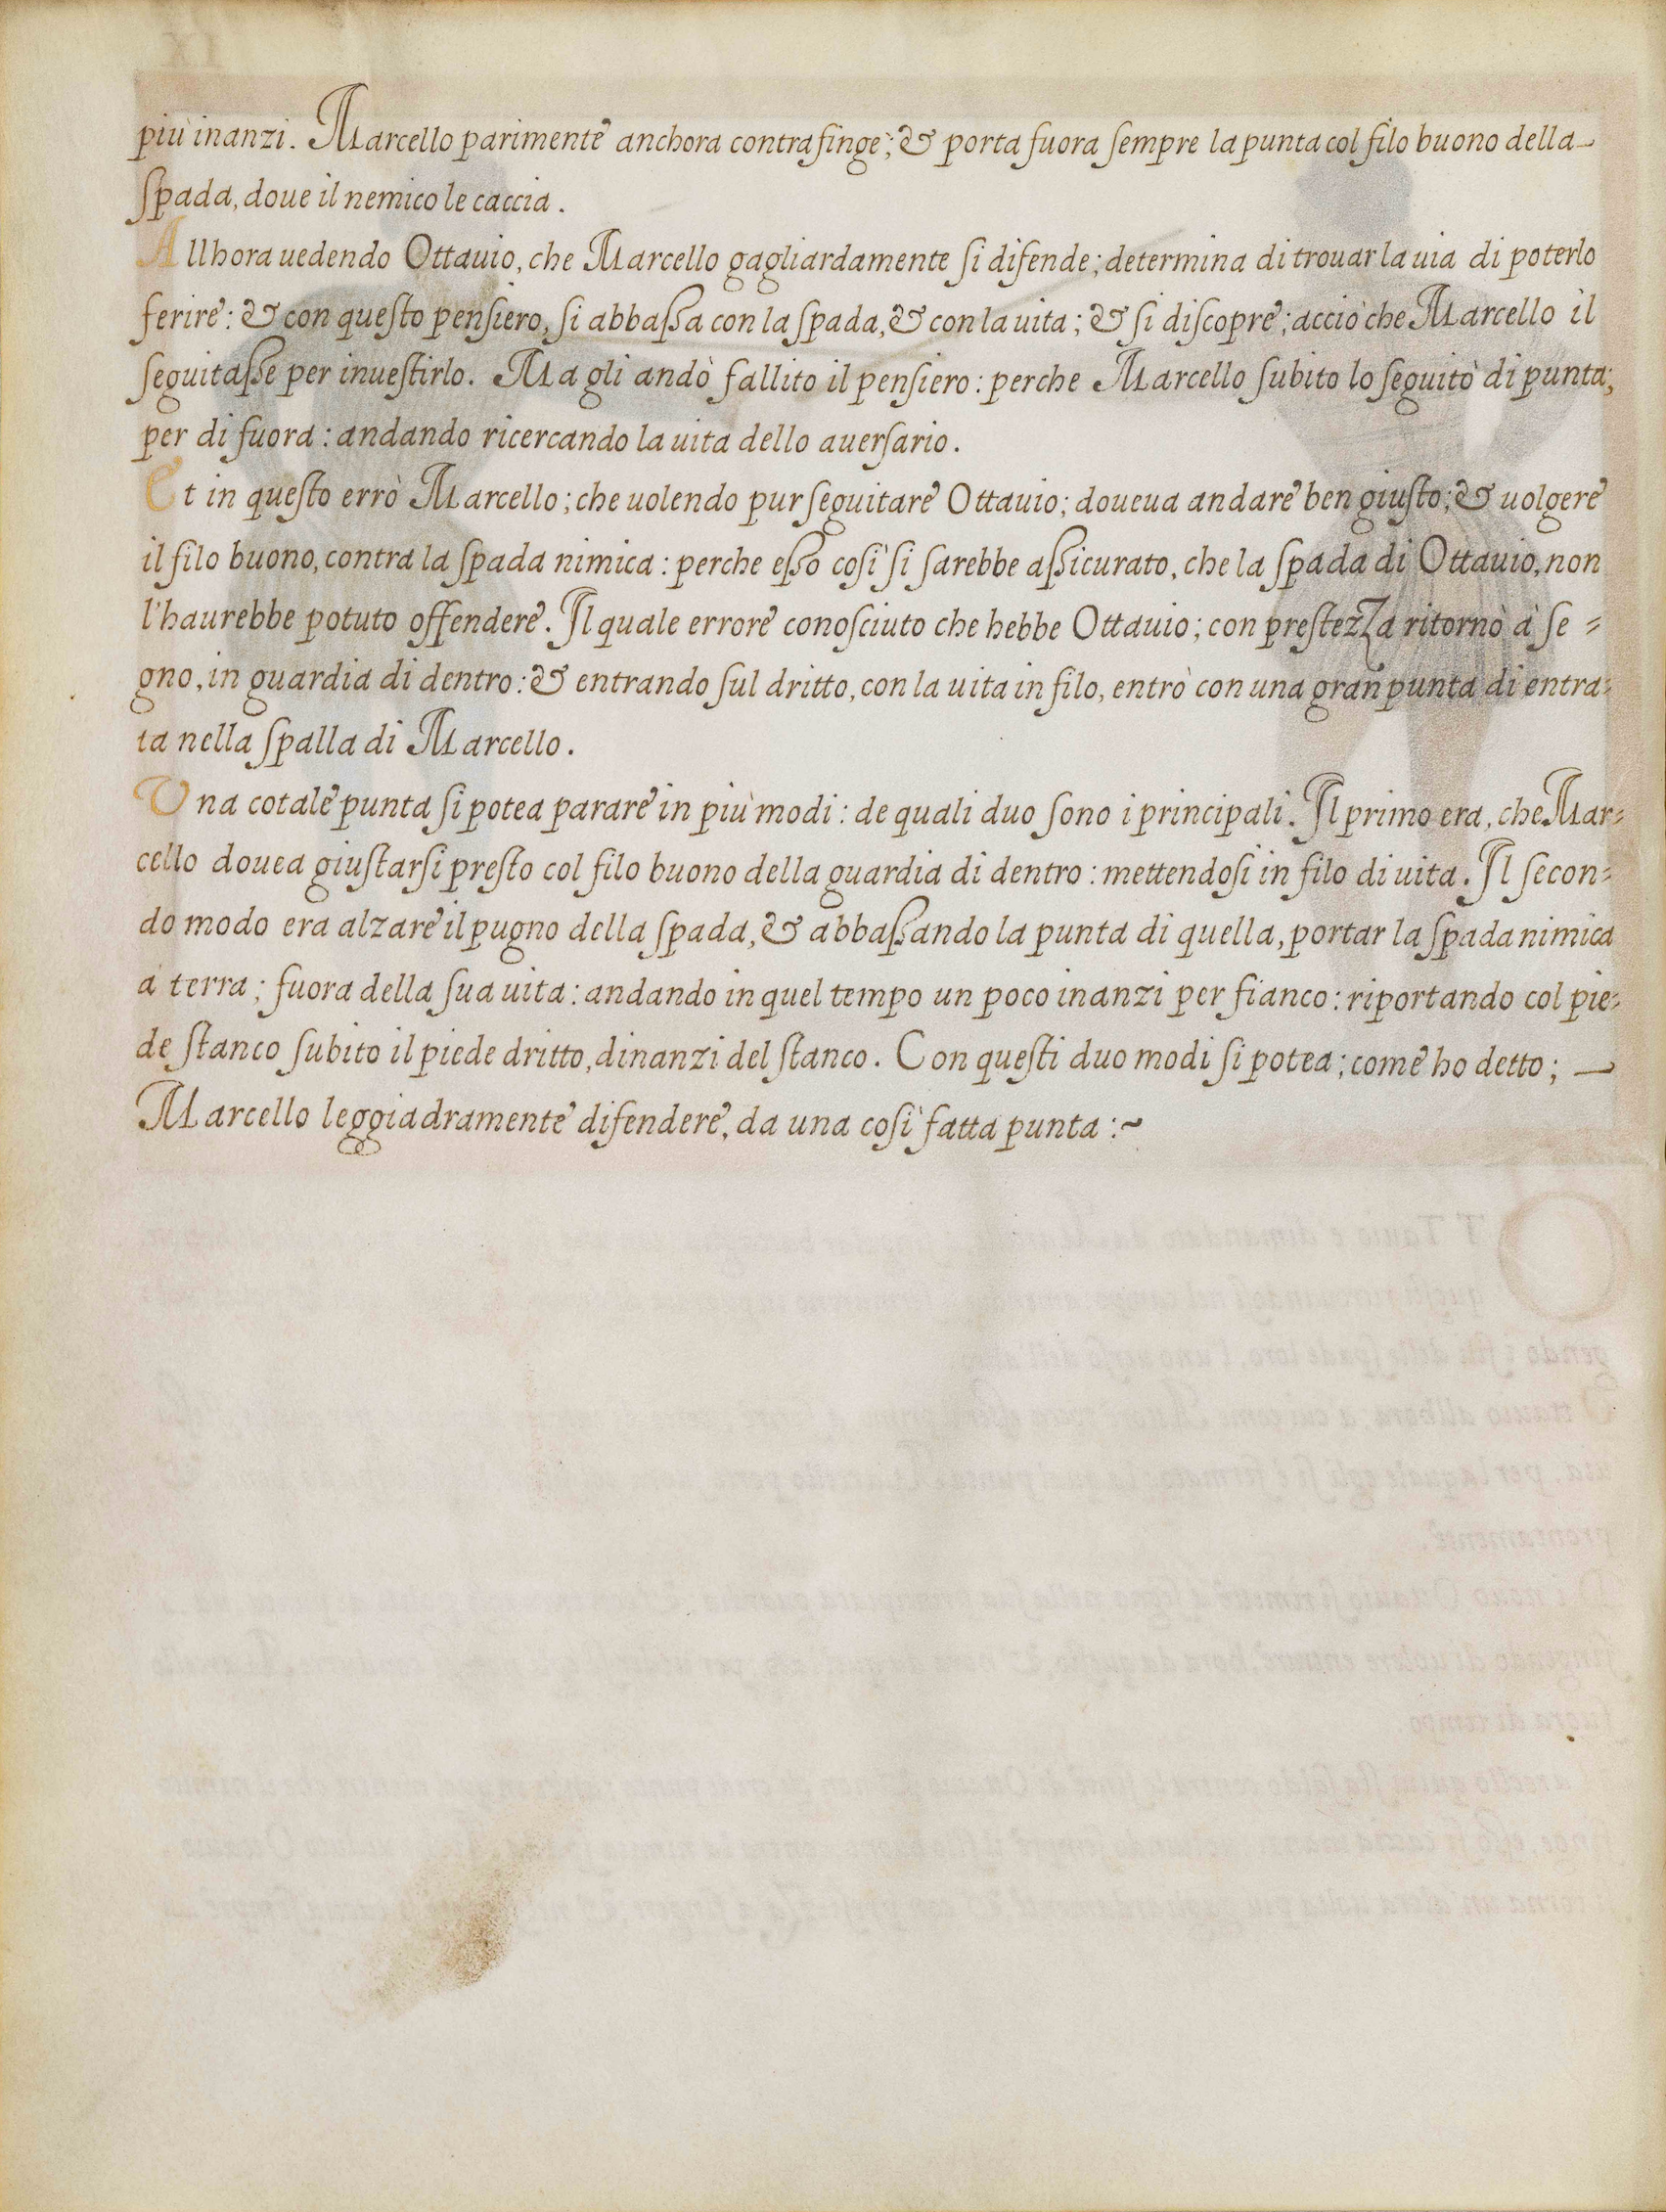 più inanzi. Marcello parimente anchora contrafinge; & porta fuora ſempre la punta col filo buono della
ſpada, doue il nemico le caccia.
Allhora uedendo Ottauio, che Marcello gagliardamente ſi difende; determina di trouar la uia di poterlo
ferire: & con queſto penſiero, ſi abbaſsa con la ſpada, & con la uita; & ſi diſcopre; acciò che Marcello il
ſeguitaſse per inueſtirlo. Ma gli andò fallito il penſiero: perche Marcello ſubito lo ſeguitò di punta;
per di fuora: andando ricercando la uita dello auerſario.
Et in queſto errò Marcello; che uolendo pur ſeguitare Ottauio; doueua andare ben giuſto; & uolgere
il filo buono, contra la ſpada nimica: perche eſso coſi ſi ſarebbe aſsicurato, che la ſpada di Ottauio, non
l'haurebbe potuto offendere. Il quale errore conoſciuto che hebbe Ottauio; con preſtezza ritornò à ſe=
gno, in guardia di dentro: & entrando ſul dritto, con la uita in filo, entrò con una gran punta di entra=
ta nella ſpalla di Marcello.
Una cotale punta ſi potea parare in più modi: de quali duo ſono i principali. Il primo era, che Mar=
cello douea giuſtarſi preſto col filo buono della guardia di dentro: mettendoſi in filo di uita. Il ſecon=
do modo era alzare il pugno della ſpada, & abbaſsando la punta di quella, portar la ſpada nimica
à terra; fuora della ſua uita: andando in quel tempo un poco inanzi per fianco: riportando col pie=
de ſtanco ſubito il piede dritto, dinanzi del ſtanco. Con queſti duo modi ſi potea; come ho detto;
Marcello leggiadramente difendere, da una coſì fatta punta:~